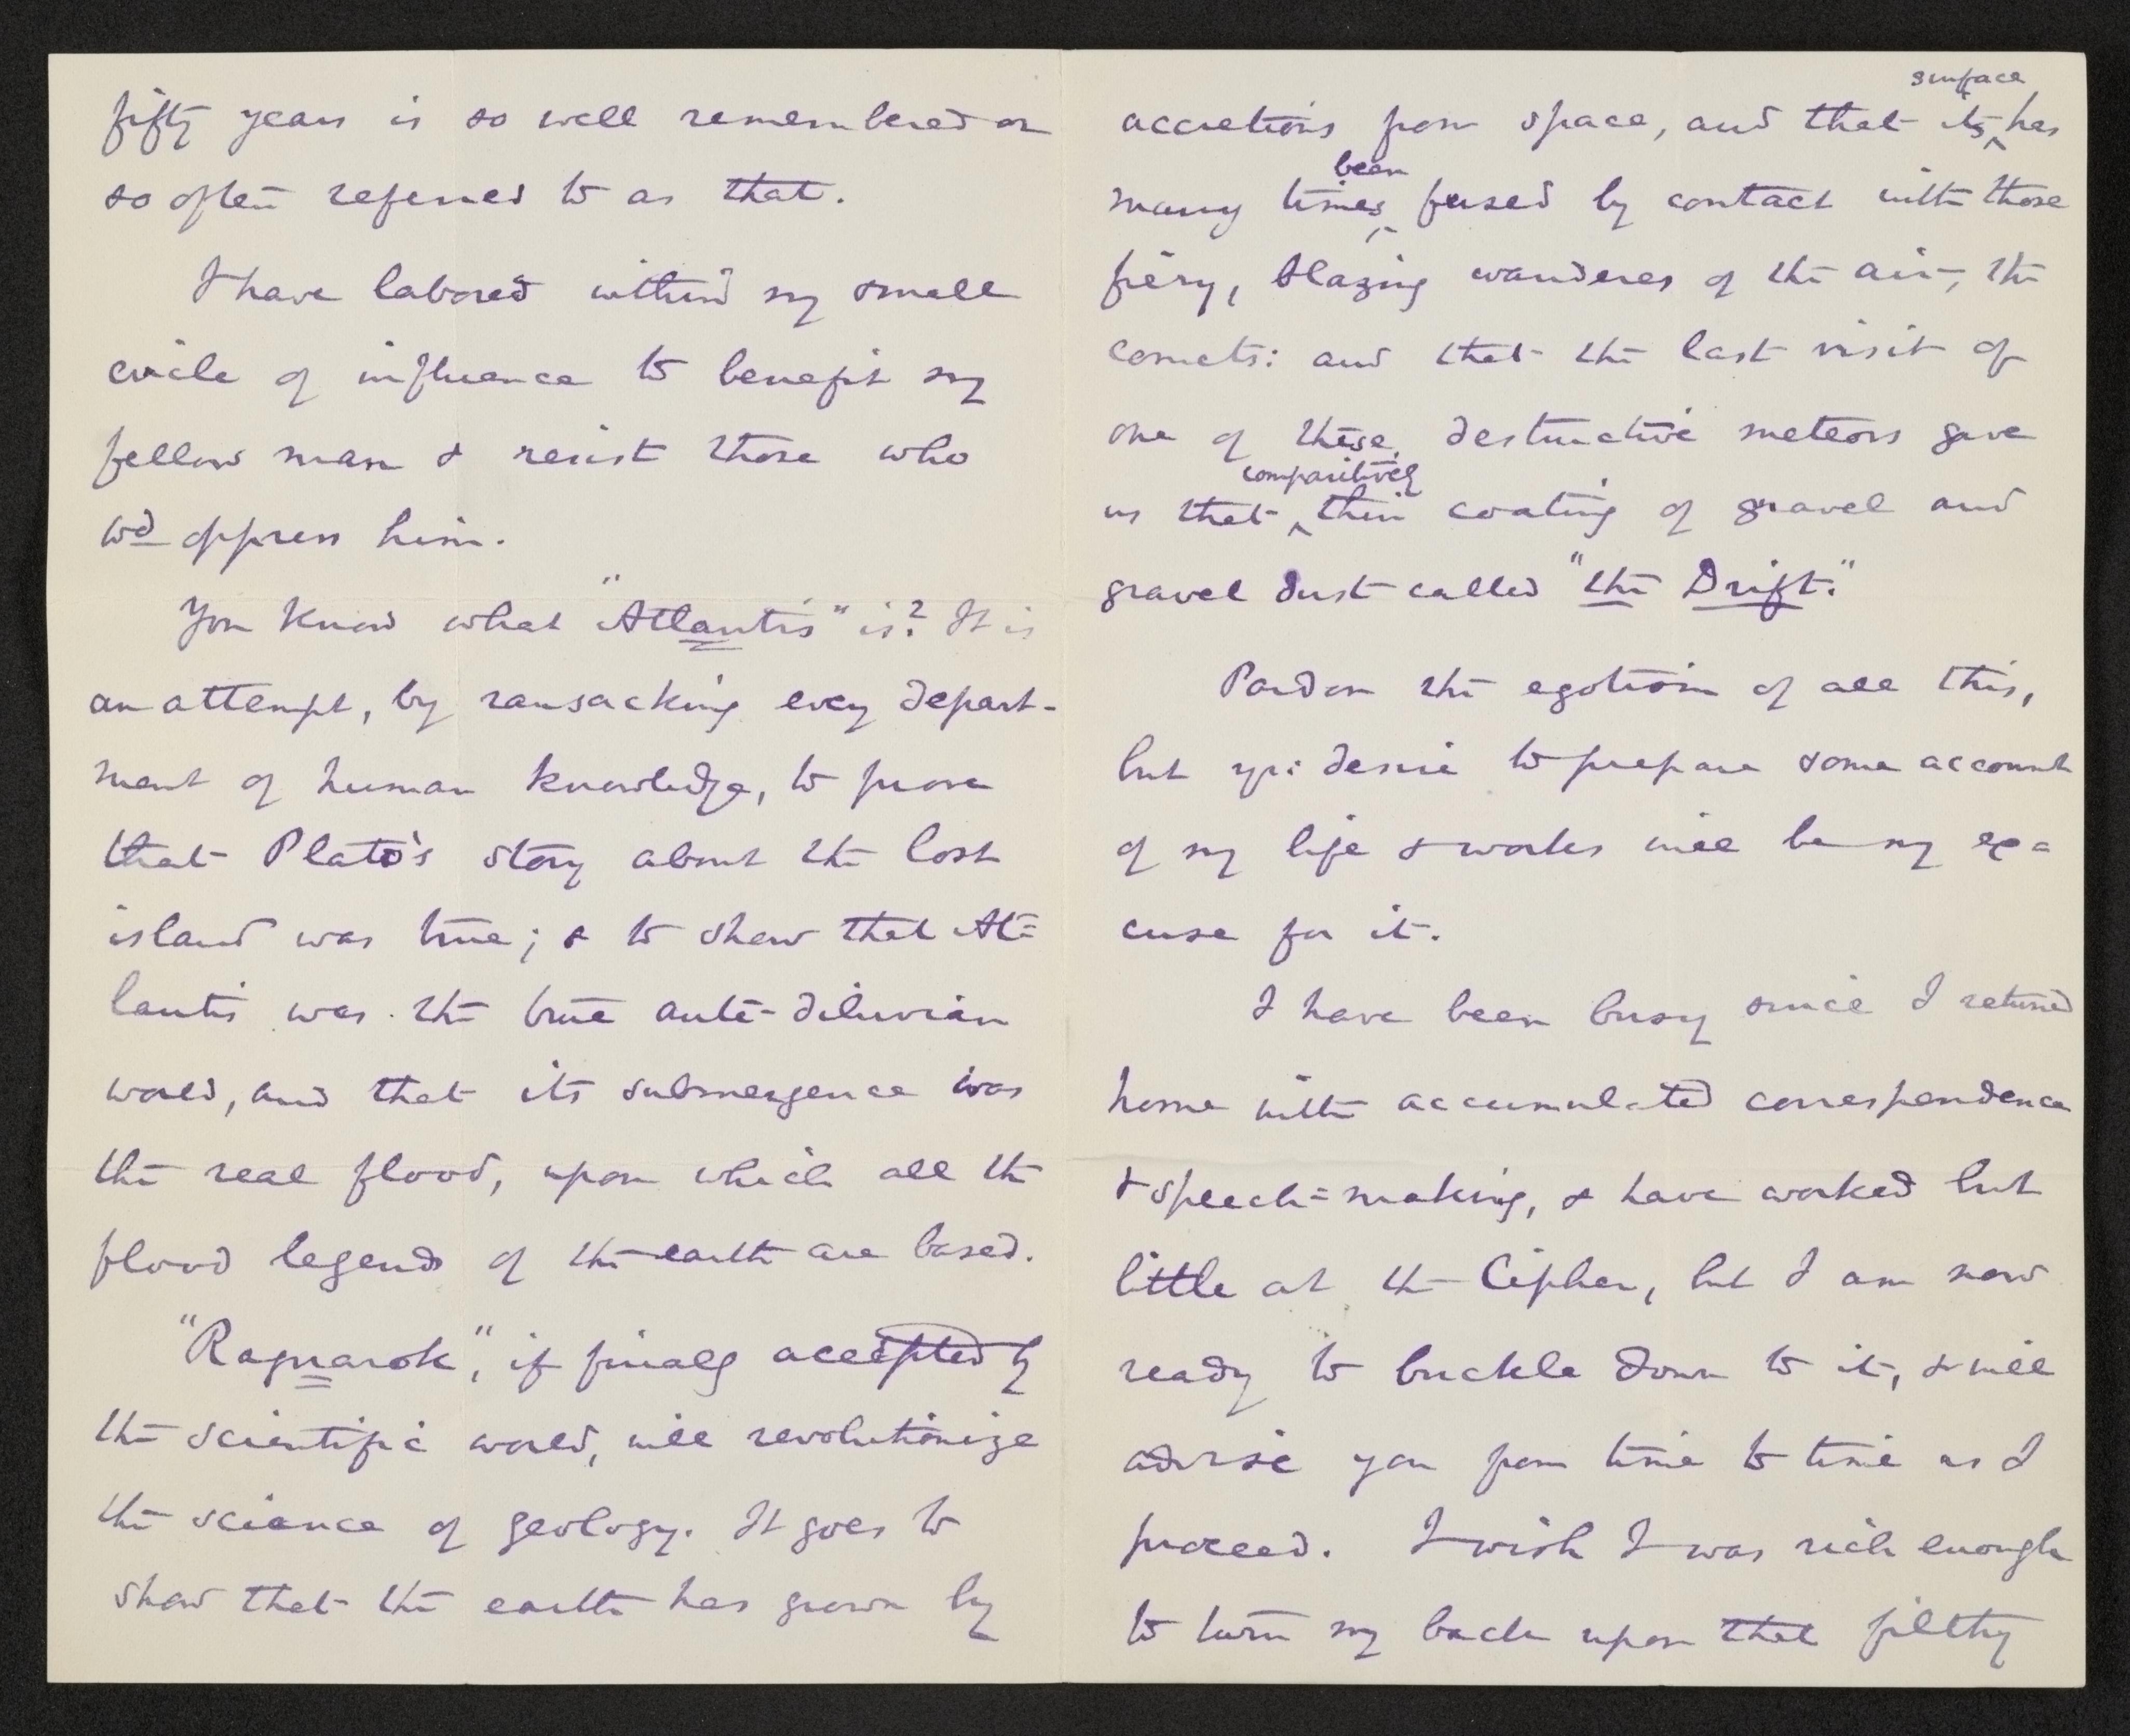 fifty years is so well remembered or
so often referred to as that.
I have labored within my small
circle of influence to benefit my
fellow man & resist those who
wd oppress him.
You know what "Atlantis" is? It is
an attempt, by ransacking every depart-
ment of human knowledge, to prove
that Plato's story about the lost
island was true; & to show that At=
lantis was the true ante-diluvian
world, and that its submergence was
the real flood, upon which all the
flood legends of the earth are based.
"Ragnarok", if finally accepted by
the scientific world, will revolutionize
the science of geology. It goes to
show that the earth has grown by
accretions from space, and that its surface has
many times been fused by contact with those
fiery, blazing wanderers of the air, the
comets: and that the last visit of
one of these destructive meteors gave
us that comparitively thin coating of gravel and
gravel dust called "the Drift."
Pardon the egotism of all this,
but yr: desire to prepare some account
of my life & works will be my ex=
cuse for it.
I have been busy since I returned
home with accumulated correspondence
& speech=making, & have worked but
little at the Cipher, but I am now
ready to buckle down to it, & will
advise you from time to time as I
proceed. I wish I was rich enough
to turn my back upon that filthy